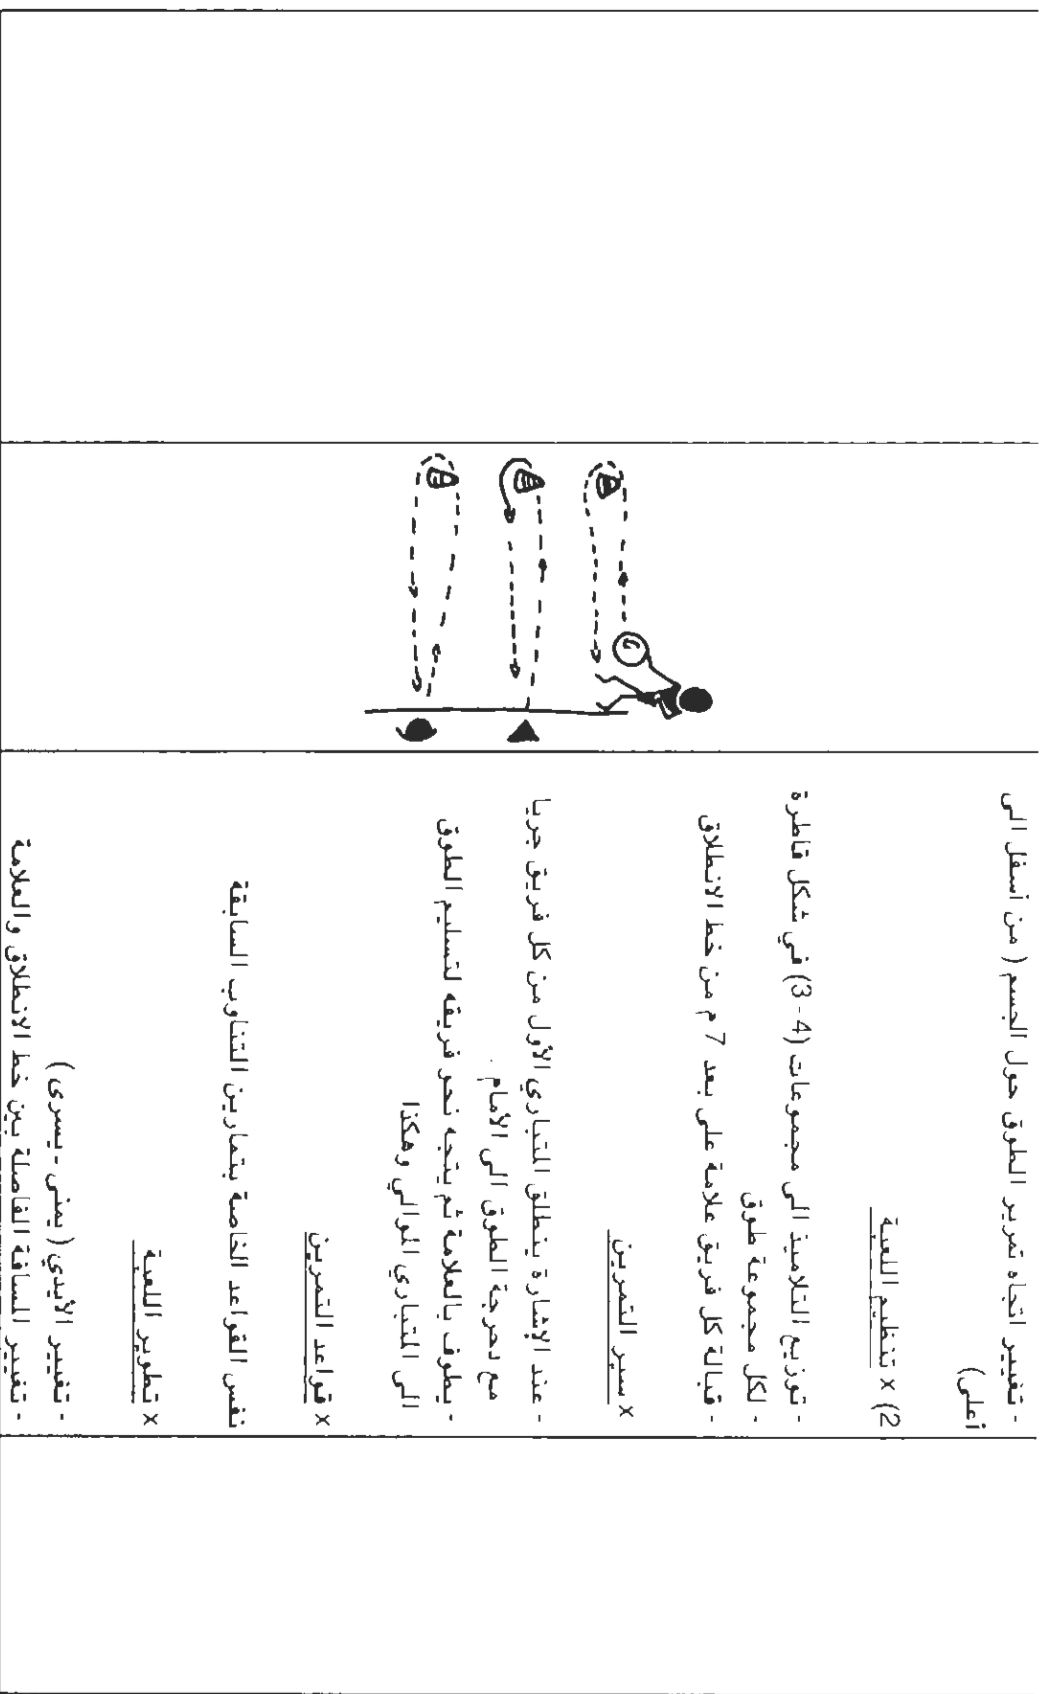 - تغيير اتجاه تمرير الطوق حول الجسم (من أسفل الى
أعلى)
2) x تنظيم اللعبة
- توزيع التلاميذ الى مجموعات (4-3) في شكل قاطرة
- لكل مجموعة طوق
- قبالة كل فريق علامة على بعد 7 م من خط الانطلاق
x سير التمرين
- عند الإشارة ينطلق المتباري الأول من كل فريق جريا
مع دحرجة الطوق الى الأمام.
- يطوف بالعلامة ثم يتجه نحو فريقه لتسليم الطوق
الى المتباري الموالي وهكذا
x قواعد التمرين
نفس القواعد الخاصة بتمارين التناوب السابقة
x تطوير اللعبة
- تغيير الأيدي (يمنى - يسرى)
- تغيير المسافة الفاصلة بين خط الانطلاق والعلامة